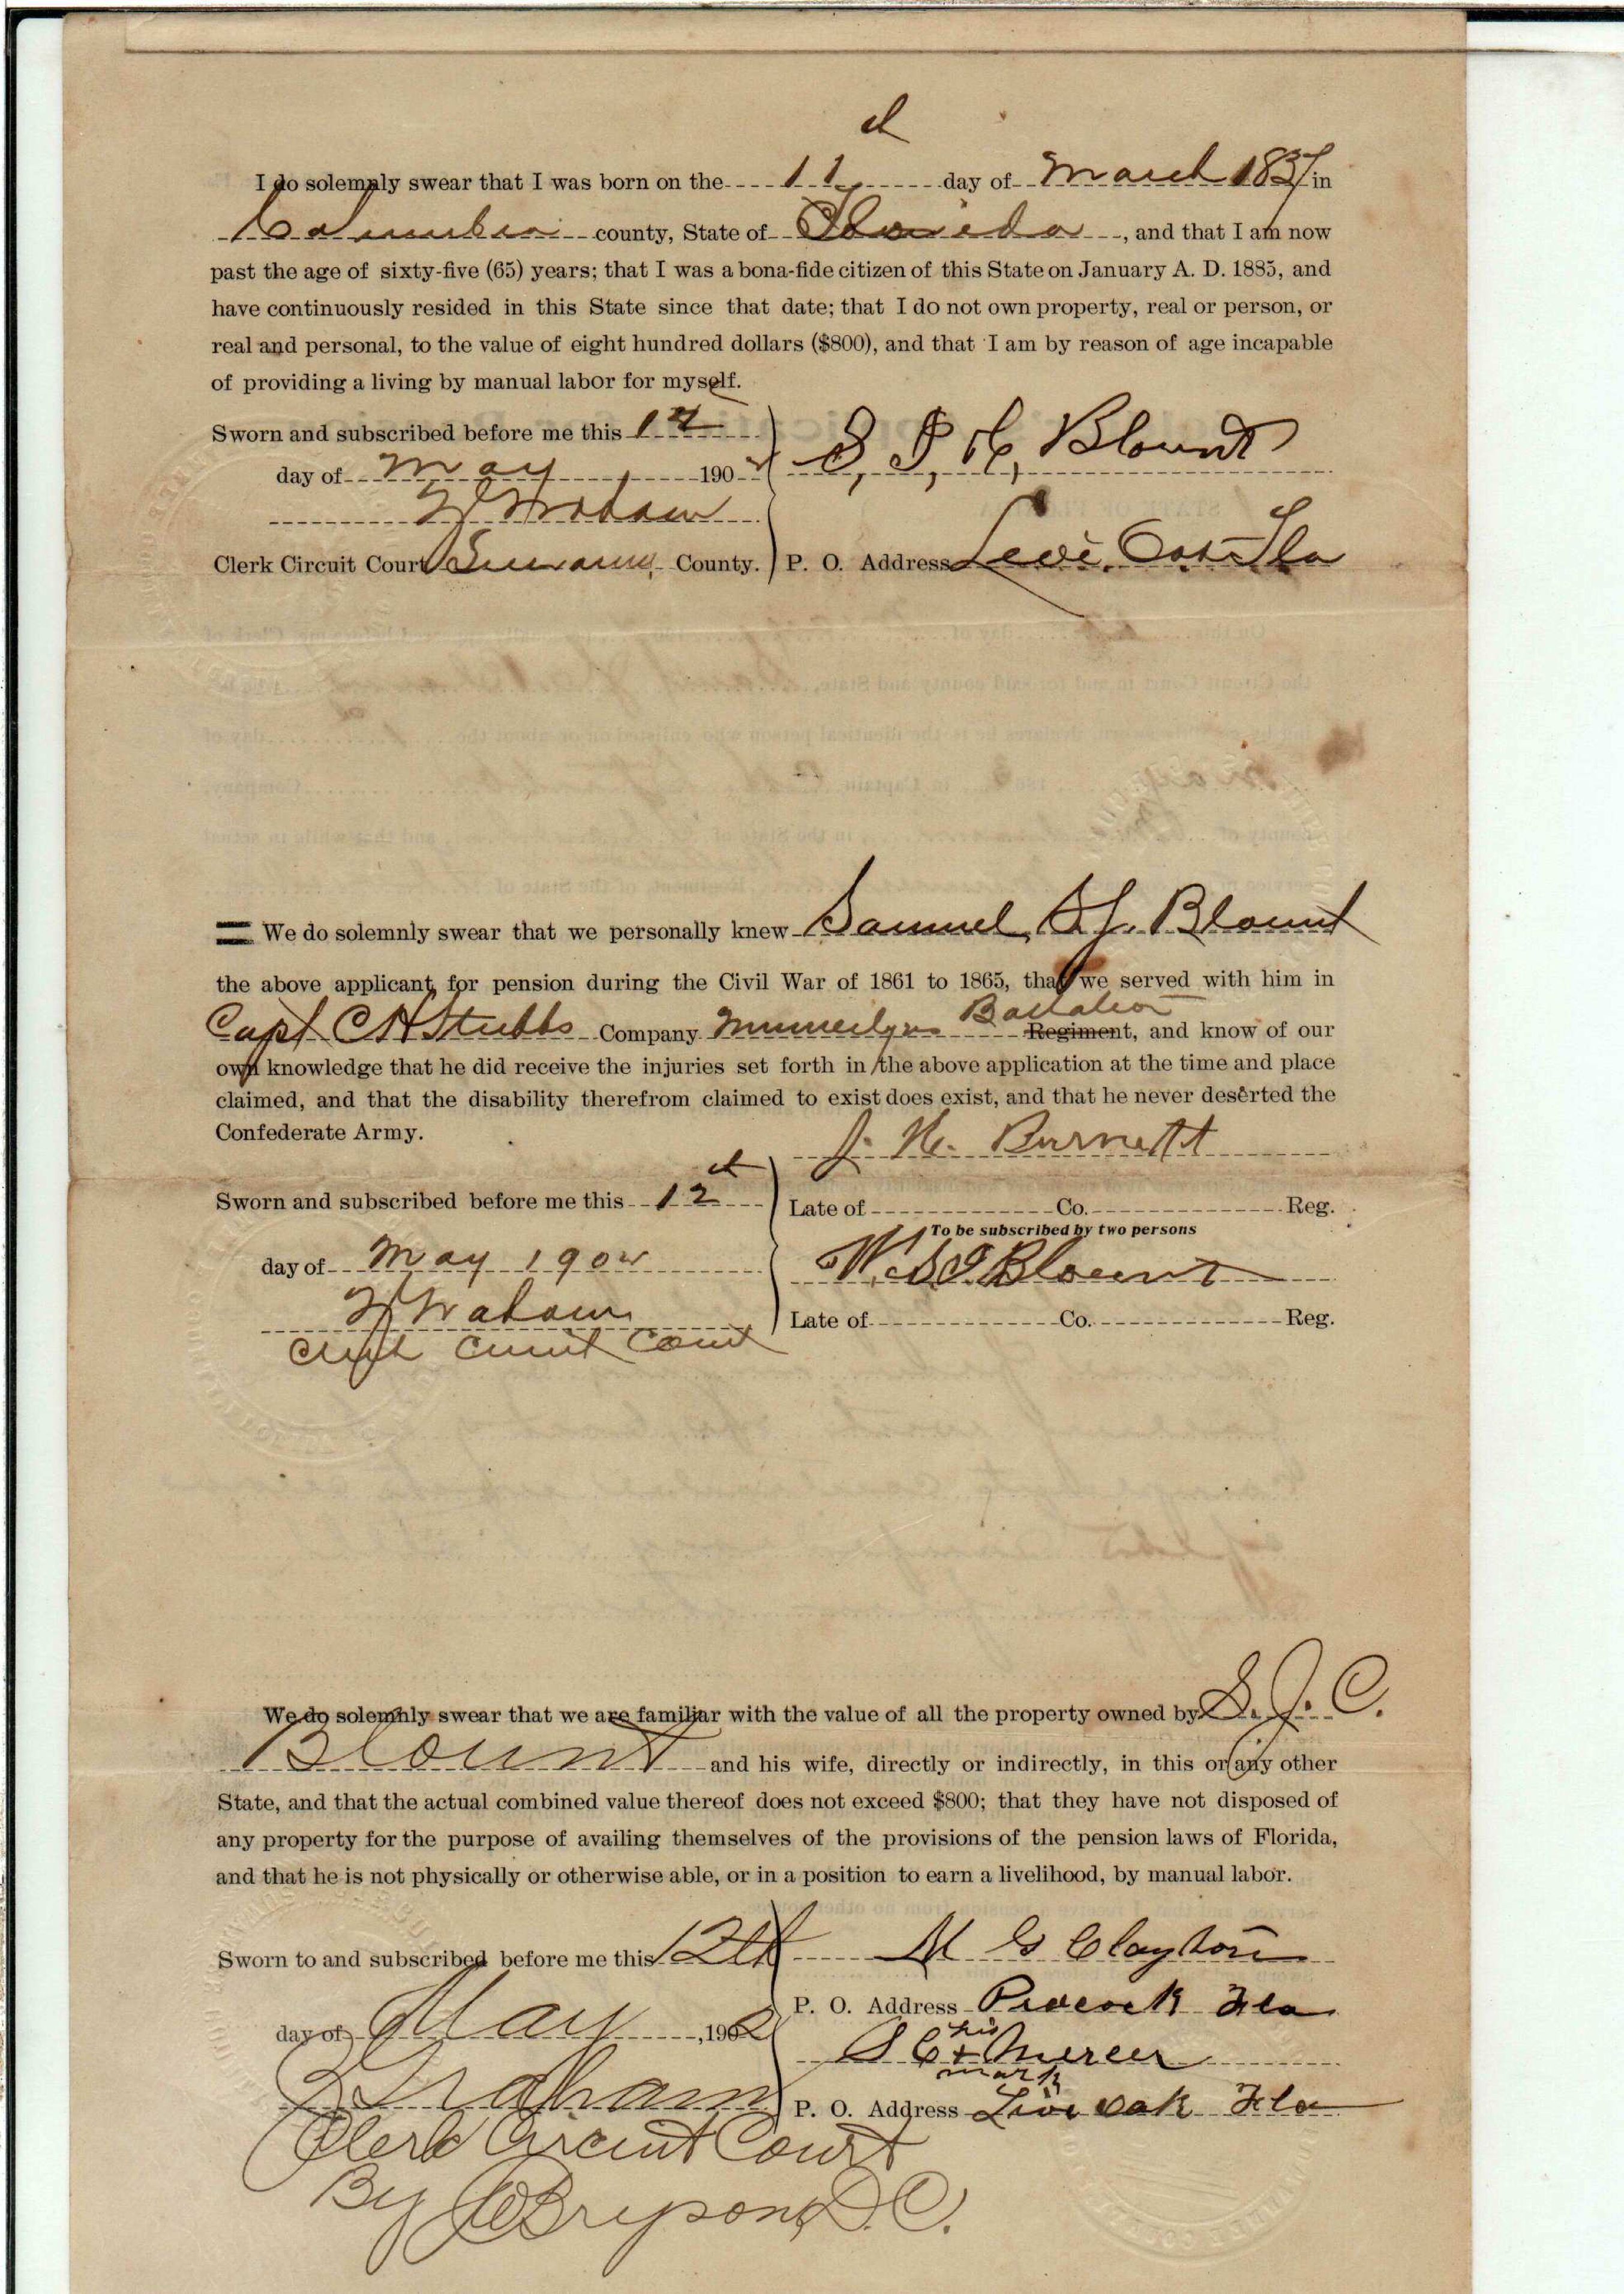 I do solemnly swear that I was born on the 11th day of March 1837 in
Columbia county, State of Florida, and that I am now
past the age of sixty-five (65) years; that I was a bona-fide citizen of this State on January A. D. 1885, and
have continuously resided in this State since that date; that I do not own property, real or person, or
real and personal, to the value of eight hundred dollars ($800), and that I am by reason of age incapable
of providing a living by manual labor for myself.
Sworn and subscribed before me this
day of May 190
Blount
Clerk Circuit Court Suwannee County. P. O. Address Live Oak Fla
We do solemnly swear that we personally knew Samuel Blount
the above applicant for pension during the Civil War of 1861 to 1865, that we served with him in
Capt C H Stubbs Company Battalion Regiment, and know of our
own knowledge that he did receive the injuries set forth in the above application at the time and place
claimed, and that the disability therefrom claimed to exist does exist, and that he never deserted the
Confederate Army.
J. H. Burnett
Sworn and subscribed before me this 12th
Late of Co. Reg.
To be subscribed by two persons
day of May 1902
W. Blount
Late of Co. Reg.
Clerk Circuit Court
We do solemnly swear that we are familiar with the value of all the property owned by S. J. C.
Blount and his wife, directly or indirectly, in this or any other
State, and that the actual combined value thereof does not exceed $800; that they have not disposed of
any property for the purpose of availing themselves of the provisions of the pension laws of Florida,
and that he is not physically or otherwise able, or in a position to earn a livelihood, by manual labor.
Sworn to and subscribed before me this 12th
M G Clayton
P. O. Address Peacock Fla
day of May, 1902
S C his + mark Mercer
Graham
P. O. Address Live oak Fla
Clerk Circuit Court
By Bryson, D. C.